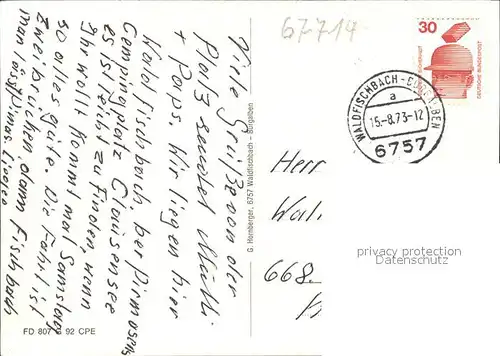 67-714
30
DEUTSCHE BUNDESPOST
WALDFISCHBACH-BURGALBEN
a
15.-8.73-12
6757
Viele Grüße von der
Platz sendet Mutti
+ Paps. Wir liegen hier
Waldfischbach, bei Pirmasens
Campingplatz Clausensee
es ist leicht zu finden, wenn
Ihr wollt kommt mal Samstag
so alles gute. Die Fahrt ist
Zweibrücken, dann Fischbach
man lässt Pirmas. liegen
G. Hornberger, 6757 Waldfischbach - Burgalben
Herr
Wal
668.
privacy protection
watermark
FD 807 92 CPE